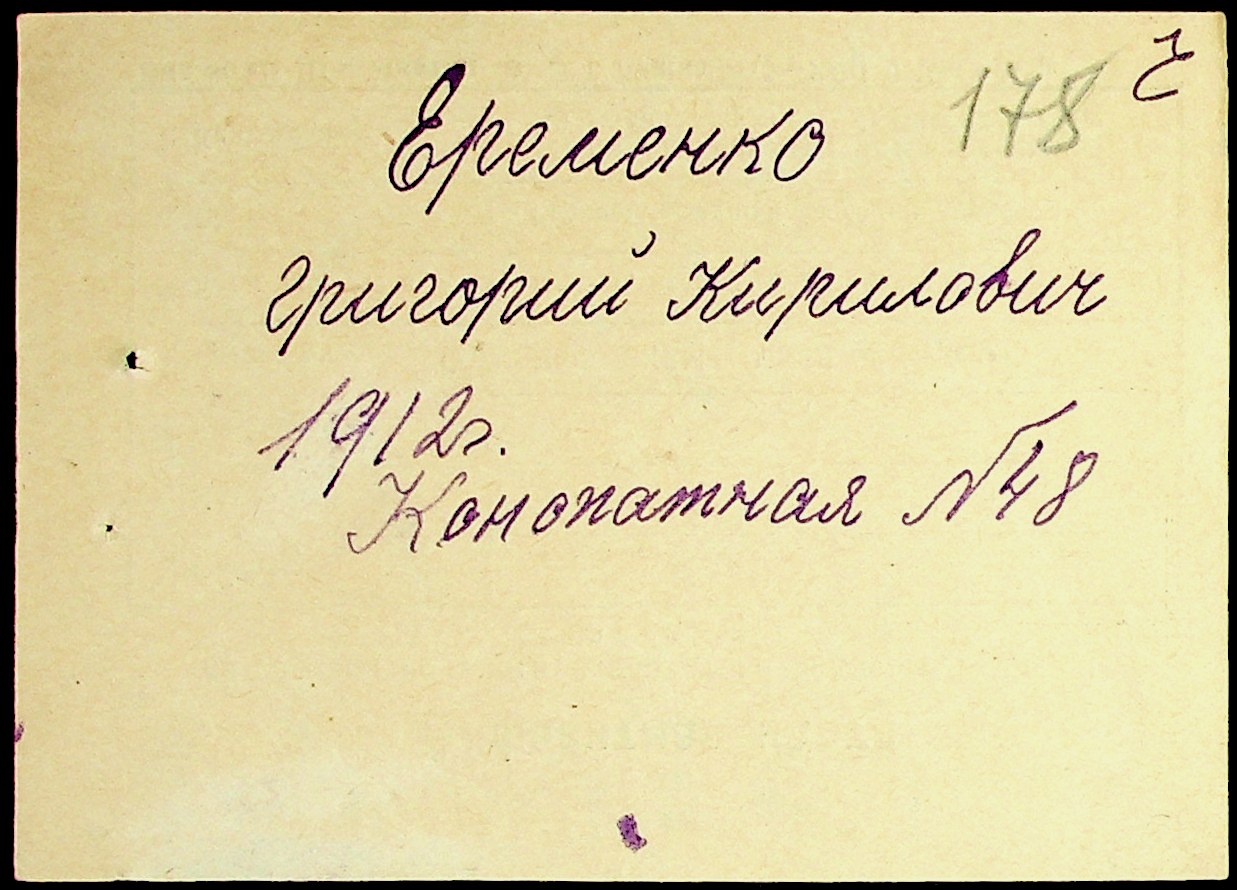 178
Еременко
Григорий Кирилович
1912г.
Конопатная №48